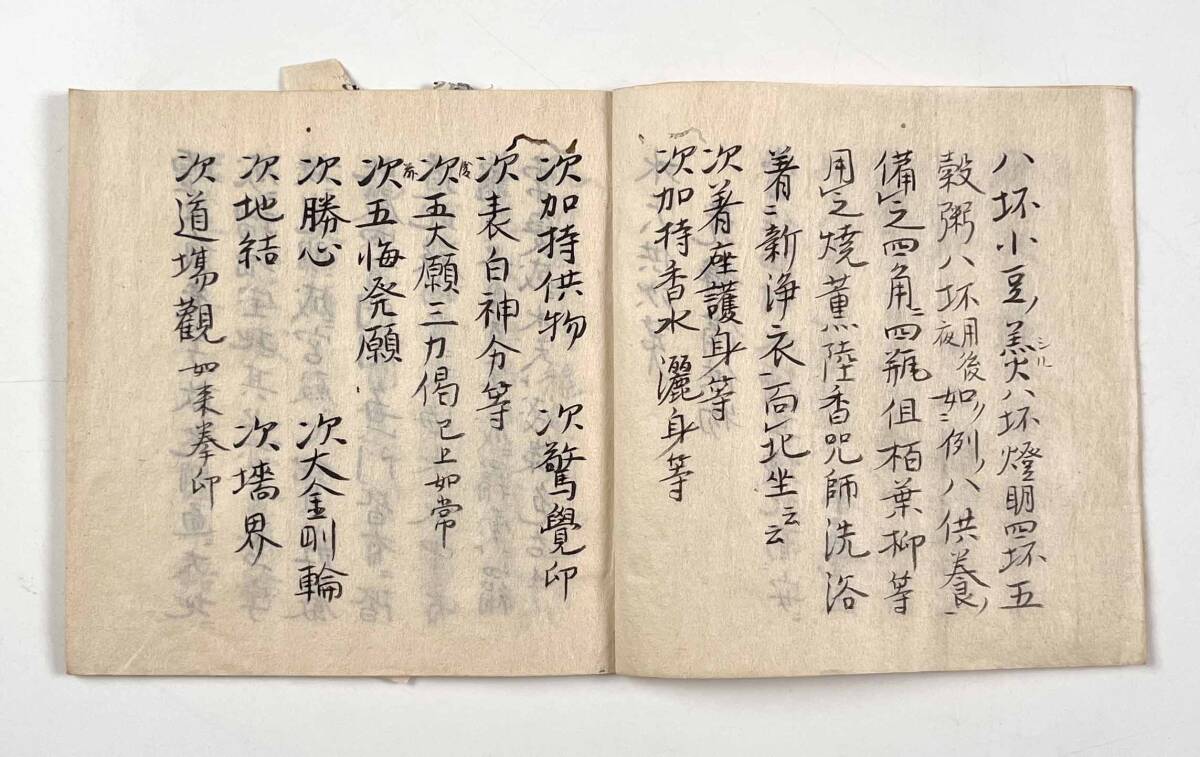 八坏小豆ノ羹シル八坏燈明四坏五
穀粥八坏後夜用如ニ例ノ八供養ノ
備之四角ニ四瓶但栢葉柳等
用之燒薫陸香咒師洗浴
著ニ新淨衣面北坐云云
次著座護身等
次加持香水灑身等
次加持供物 次驚覺印
次表白神分等
次五大願三力偈已上如常
次五悔発願
次勝心 次大金剛輪
次地結 次墻界
次道場觀如来拳印